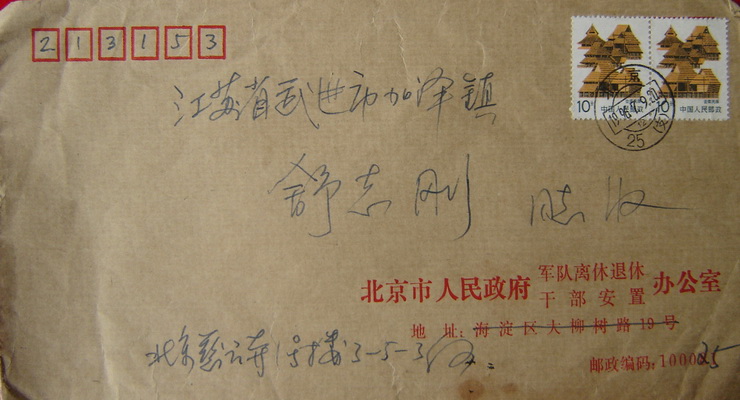 213153
10分 中国人民邮政
10分 中国人民邮政
京
25
江苏省武进市加泽镇
舒志刚 收
北京市人民政府 军队离休退休干部安置 办公室
地 址: 海淀区大柳树路19号
北京慈云寺1号楼3-5-3
邮政编码: 100025